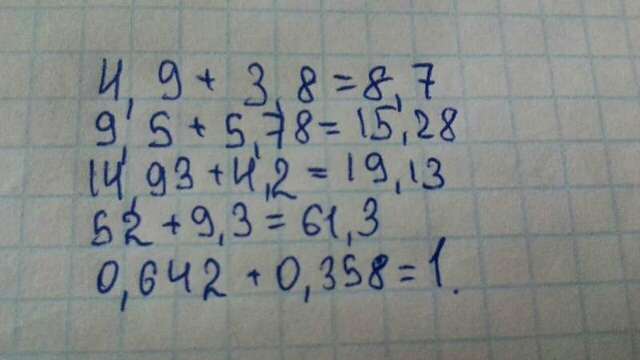 4,9 + 3,8 = 8,7
9,5 + 5,78 = 15,28
14,93 + 4,2 = 19,13
52 + 9,3 = 61,3
0,642 + 0,358 = 1.